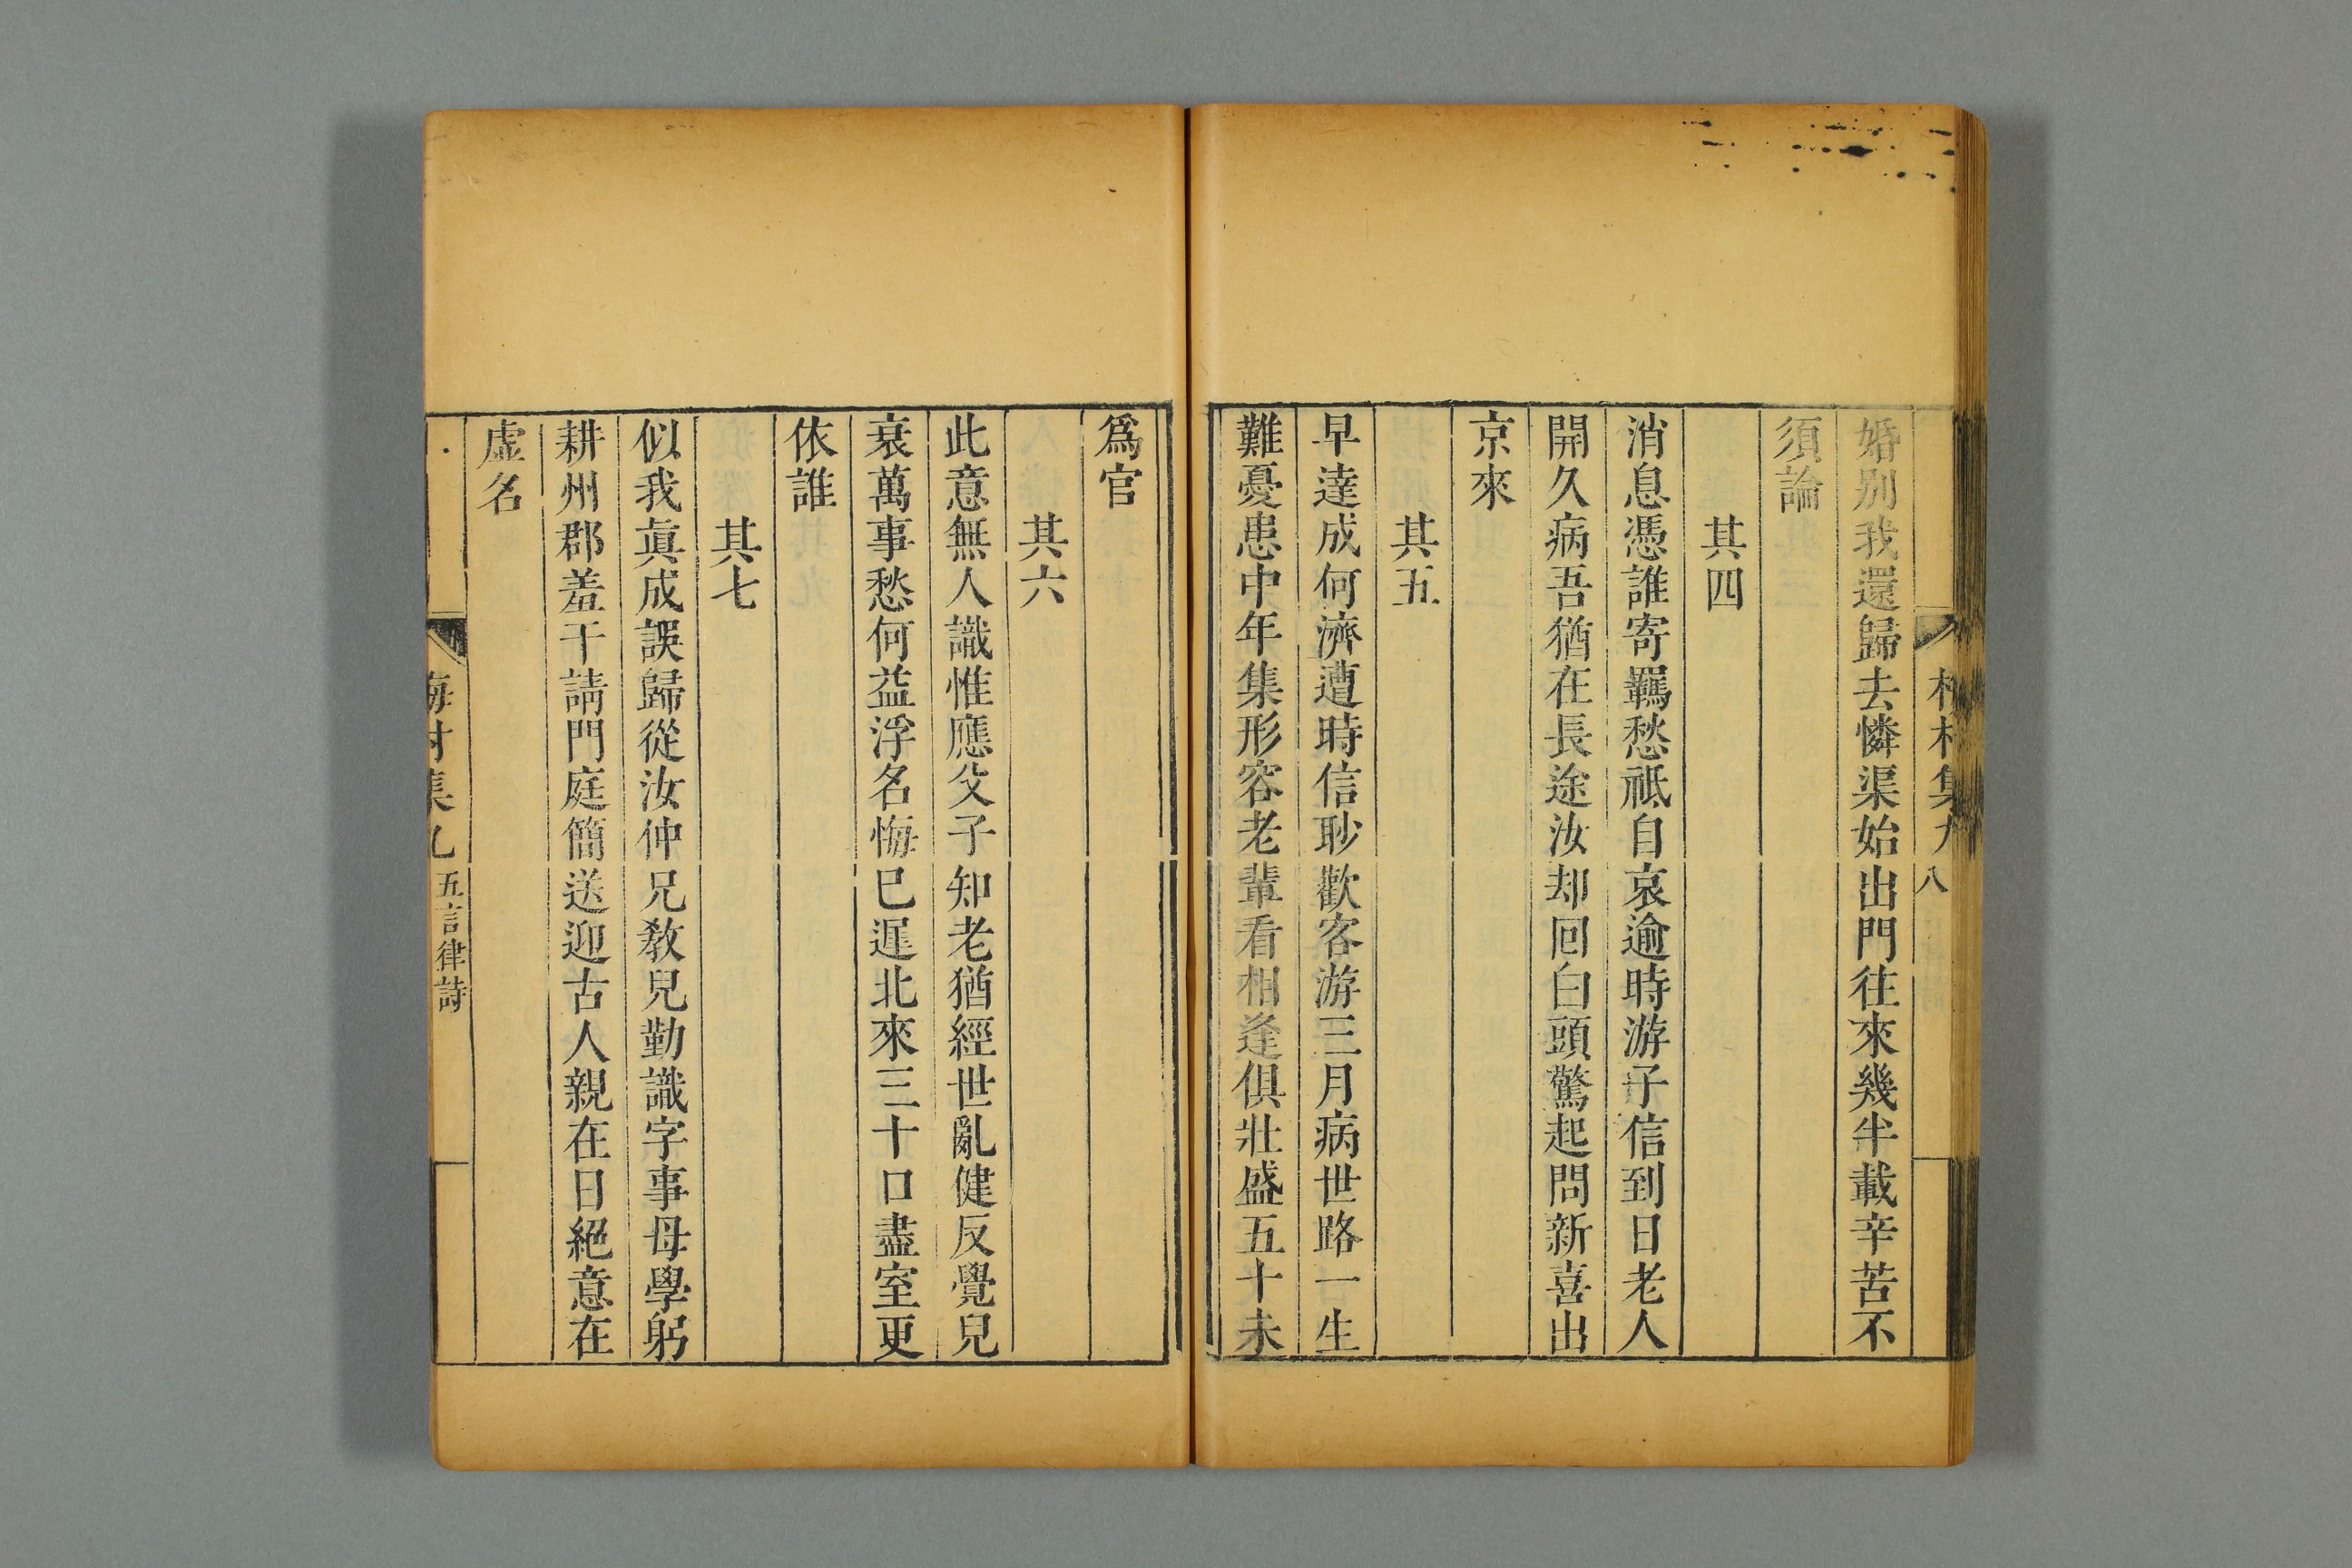 婚別我還歸去憐渠始出門往來幾半載辛苦不
須論
其四
消息憑誰寄羈愁祗自哀逾時游子信到日老人
開久病吾猶在長途汝却回白頭驚起問新喜出
京來
其五
早達成何濟遭時信眇歡客游三月病世路一生
難憂患中年集形容老輩看相逢俱壯盛五十未
爲官
其六
此意無人識惟應父子知老猶經世亂健反覺兒
衰萬事愁何益浮名悔已遲北來三十口盡室更
依誰
其七
似我眞成誤歸從汝仲兄敎兒勤識字事母學躬
耕州郡羞干請門庭簡送迎古人親在日絕意在
虛名
五言律詩